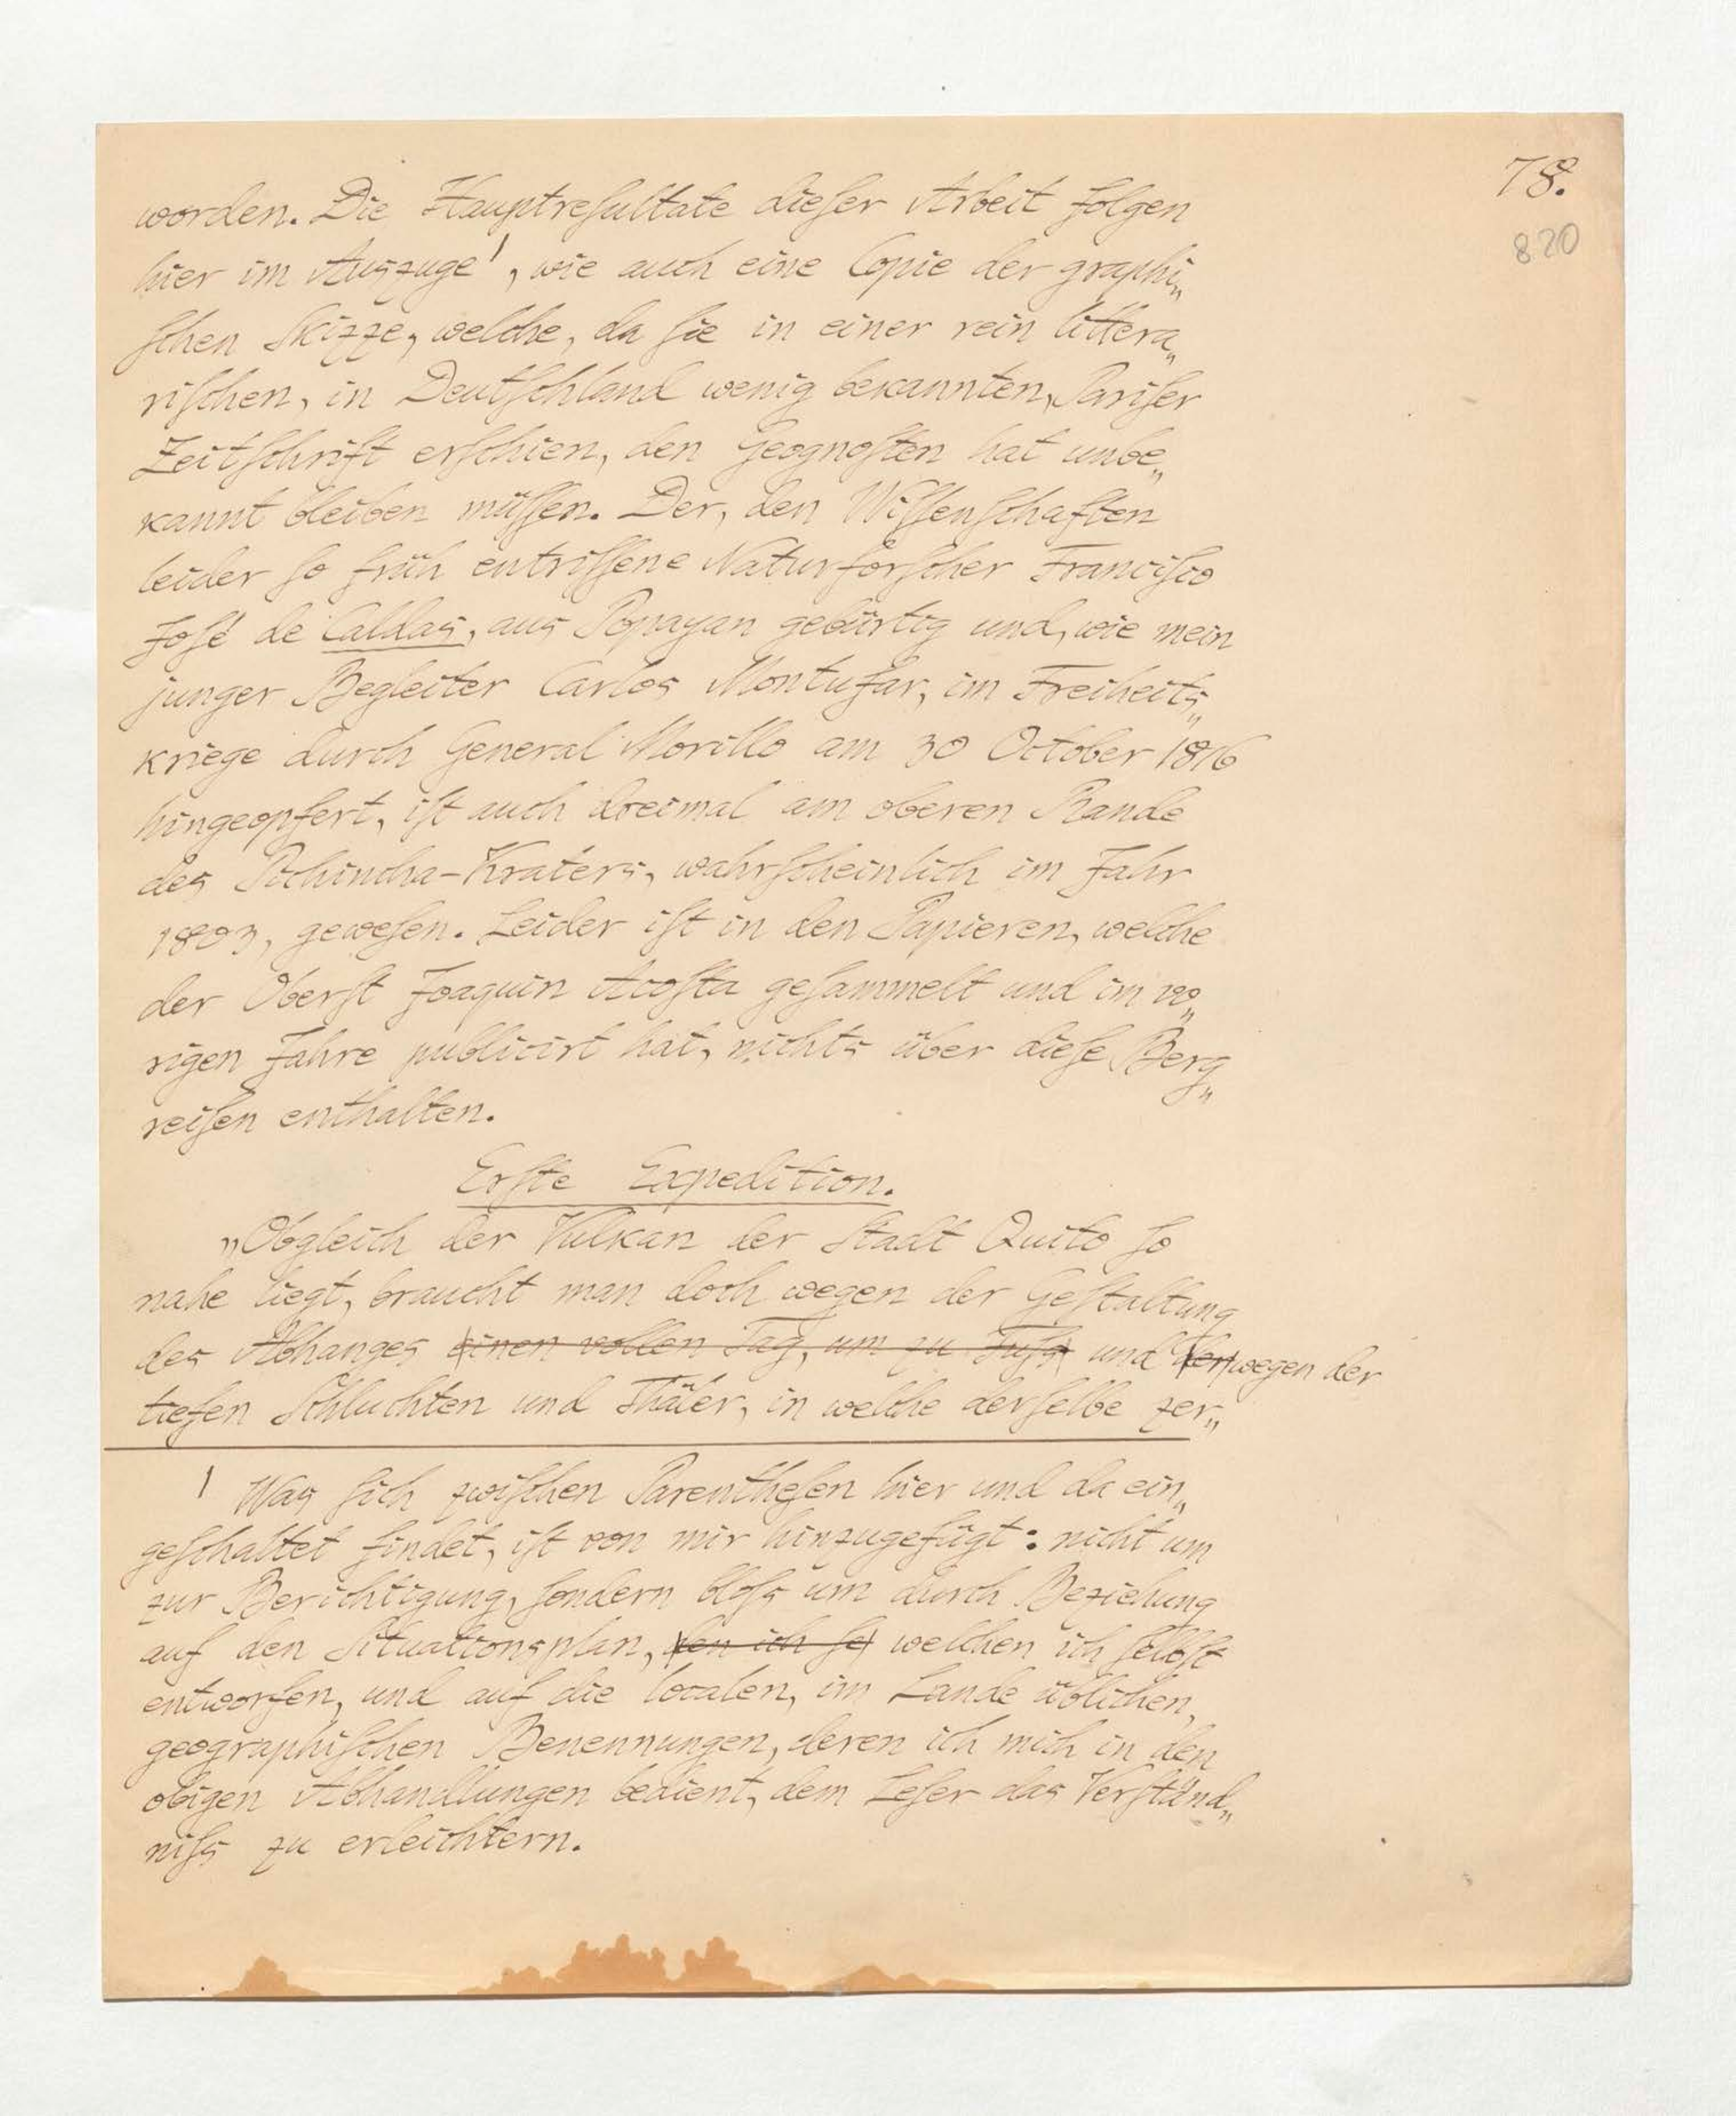 78.
820
worden. Die Hauptreſultate dieſer Arbeit folgen
hier im Auszuge¹, wie auch eine Copie der graphi„
ſchen Skizze, welche, da ſie in einer rein littera„
riſchen, in Deutſchland wenig bekannten, Pariſer
Zeitſchrift erſchien, den Geognoſten hat unbe„
kannt bleiben müſſen. Der, den Wiſſenſchaften
leider ſo früh entriſſene Naturforſcher Franciſco
Joſé de Caldas, aus Popayan gebürtig und, wie mein
junger Begleiter Carlos Montufar, im Freiheits„
kriege durch General Morillo am 30 October 1816
hingeopfert, iſt auch dreimal am oberen Rande
des Pichincha-Kraters, wahrſcheinlich im Jahr
1803, geweſen. Leider iſt in den Papieren, welche
der Oberſt Joaquin Acoſta geſammelt und im vo„
rigen Jahre publicirt hat, nichts über dieſe Berg„
reiſen enthalten.
Erſte Expedition.
„Obgleich der Vulkan der Stadt Quito ſo
nahe liegt, braucht man doch wegen der Geſtaltung
des Abhanges einen vollen Tag, um zu Fuſs und der wegen der
tiefen Schluchten und Thäler, in welche derſelbe zer„
¹ Was ſich zwiſchen Parentheſen hier und da ein„
geſchaltet findet, iſt von mir hinzugefügt: nicht um
zur Berichtigung, ſondern bloſs um durch Beziehung
auf den Situationsplan, den ich ſe welchen ich ſelbſt
entworfen, und auf die localen, im Lande üblichen,
geographiſchen Benennungen, deren ich mich in den
obigen Abhandlungen bedient, dem Leſer das Verſtänd„
niſs zu erleichtern.